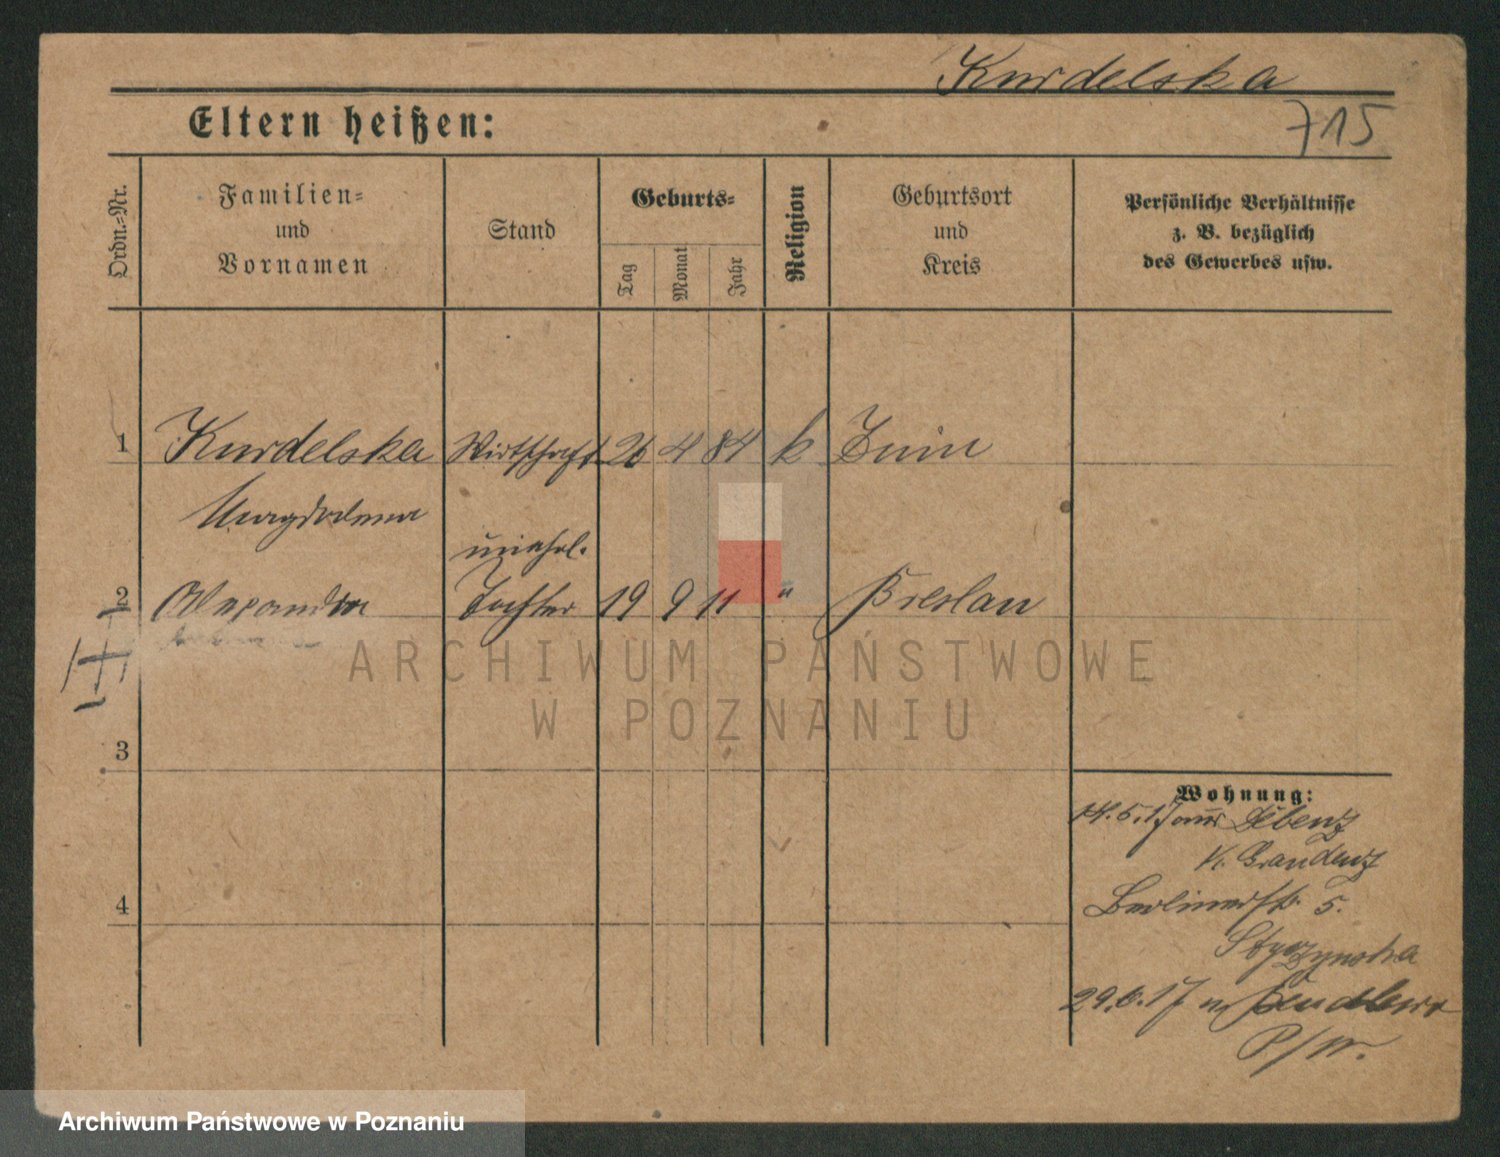 Kurdelska
715
Eltern heißen:
Ordn.=Nr.
Familien=
und
Vornamen
Stand
Geburts=
Tag
Monat
Jahr
Religion
Geburtsort
und
Kreis
Persönliche Verhältnisse
z. B. bezüglich
des Gewerbes usw.
1 Kurdelska Wirtschaft 26 4 84 k Znin
Magdalena
unehel.
2 Alexandra Tochter 19 9 11 " Breslau
ARCHIWUM PAŃSTWOWE
W POZNANIU
3
Wohnung:
14.5.17 aus Debenz
K. Graudenz
4
Berlinerstr. 5.
29.6.17 n
P/W.
Archiwum Państwowe w Poznaniu